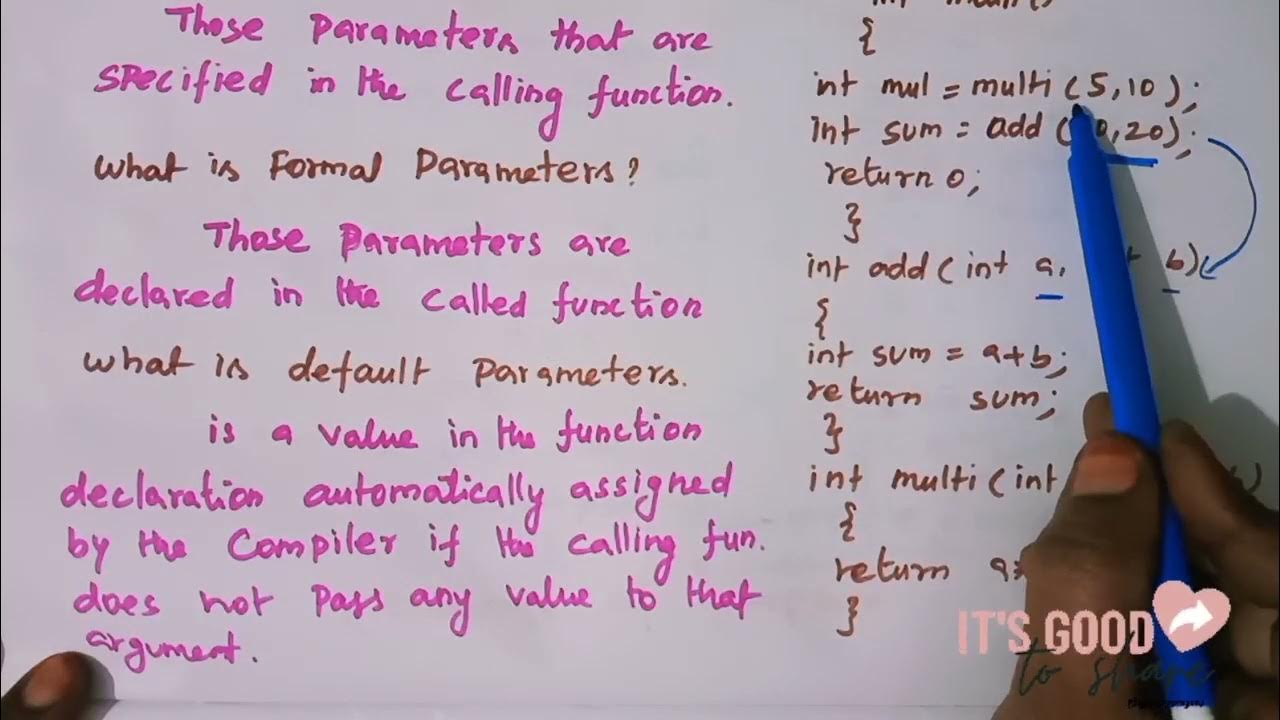 Those Parameters that are
specified in the calling function.
What is Formal Parameters?
Those Parameters are
declared in the called function
What is default Parameters.
is a value in the function
declaration automatically assigned
by the Compiler if the calling fun.
does not pass any value to that
argument.
{
int mul = multi (5,10);
int sum = add ( 0,20);
return 0;
}
int add(int a, b)
{
int sum = a+b;
return sum;
}
int multi(int
{
return a*
}
IT'S GOOD
to share